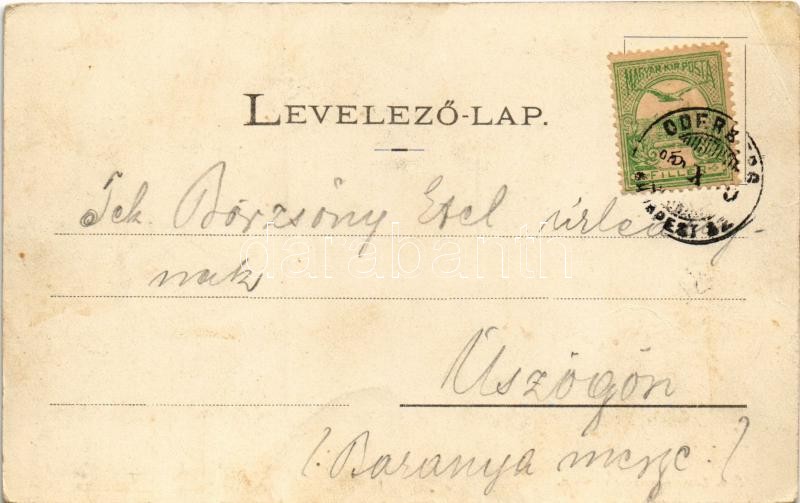 LEVELEZŐ-LAP.
MAGYAR·KIR·POSTA
FILLÉR
ODERBERG
BUDAPEST SZ
Tek. Börzsöny Etel úrleány-
nak
Üszögön
/: Baranya megye :/
darabanth